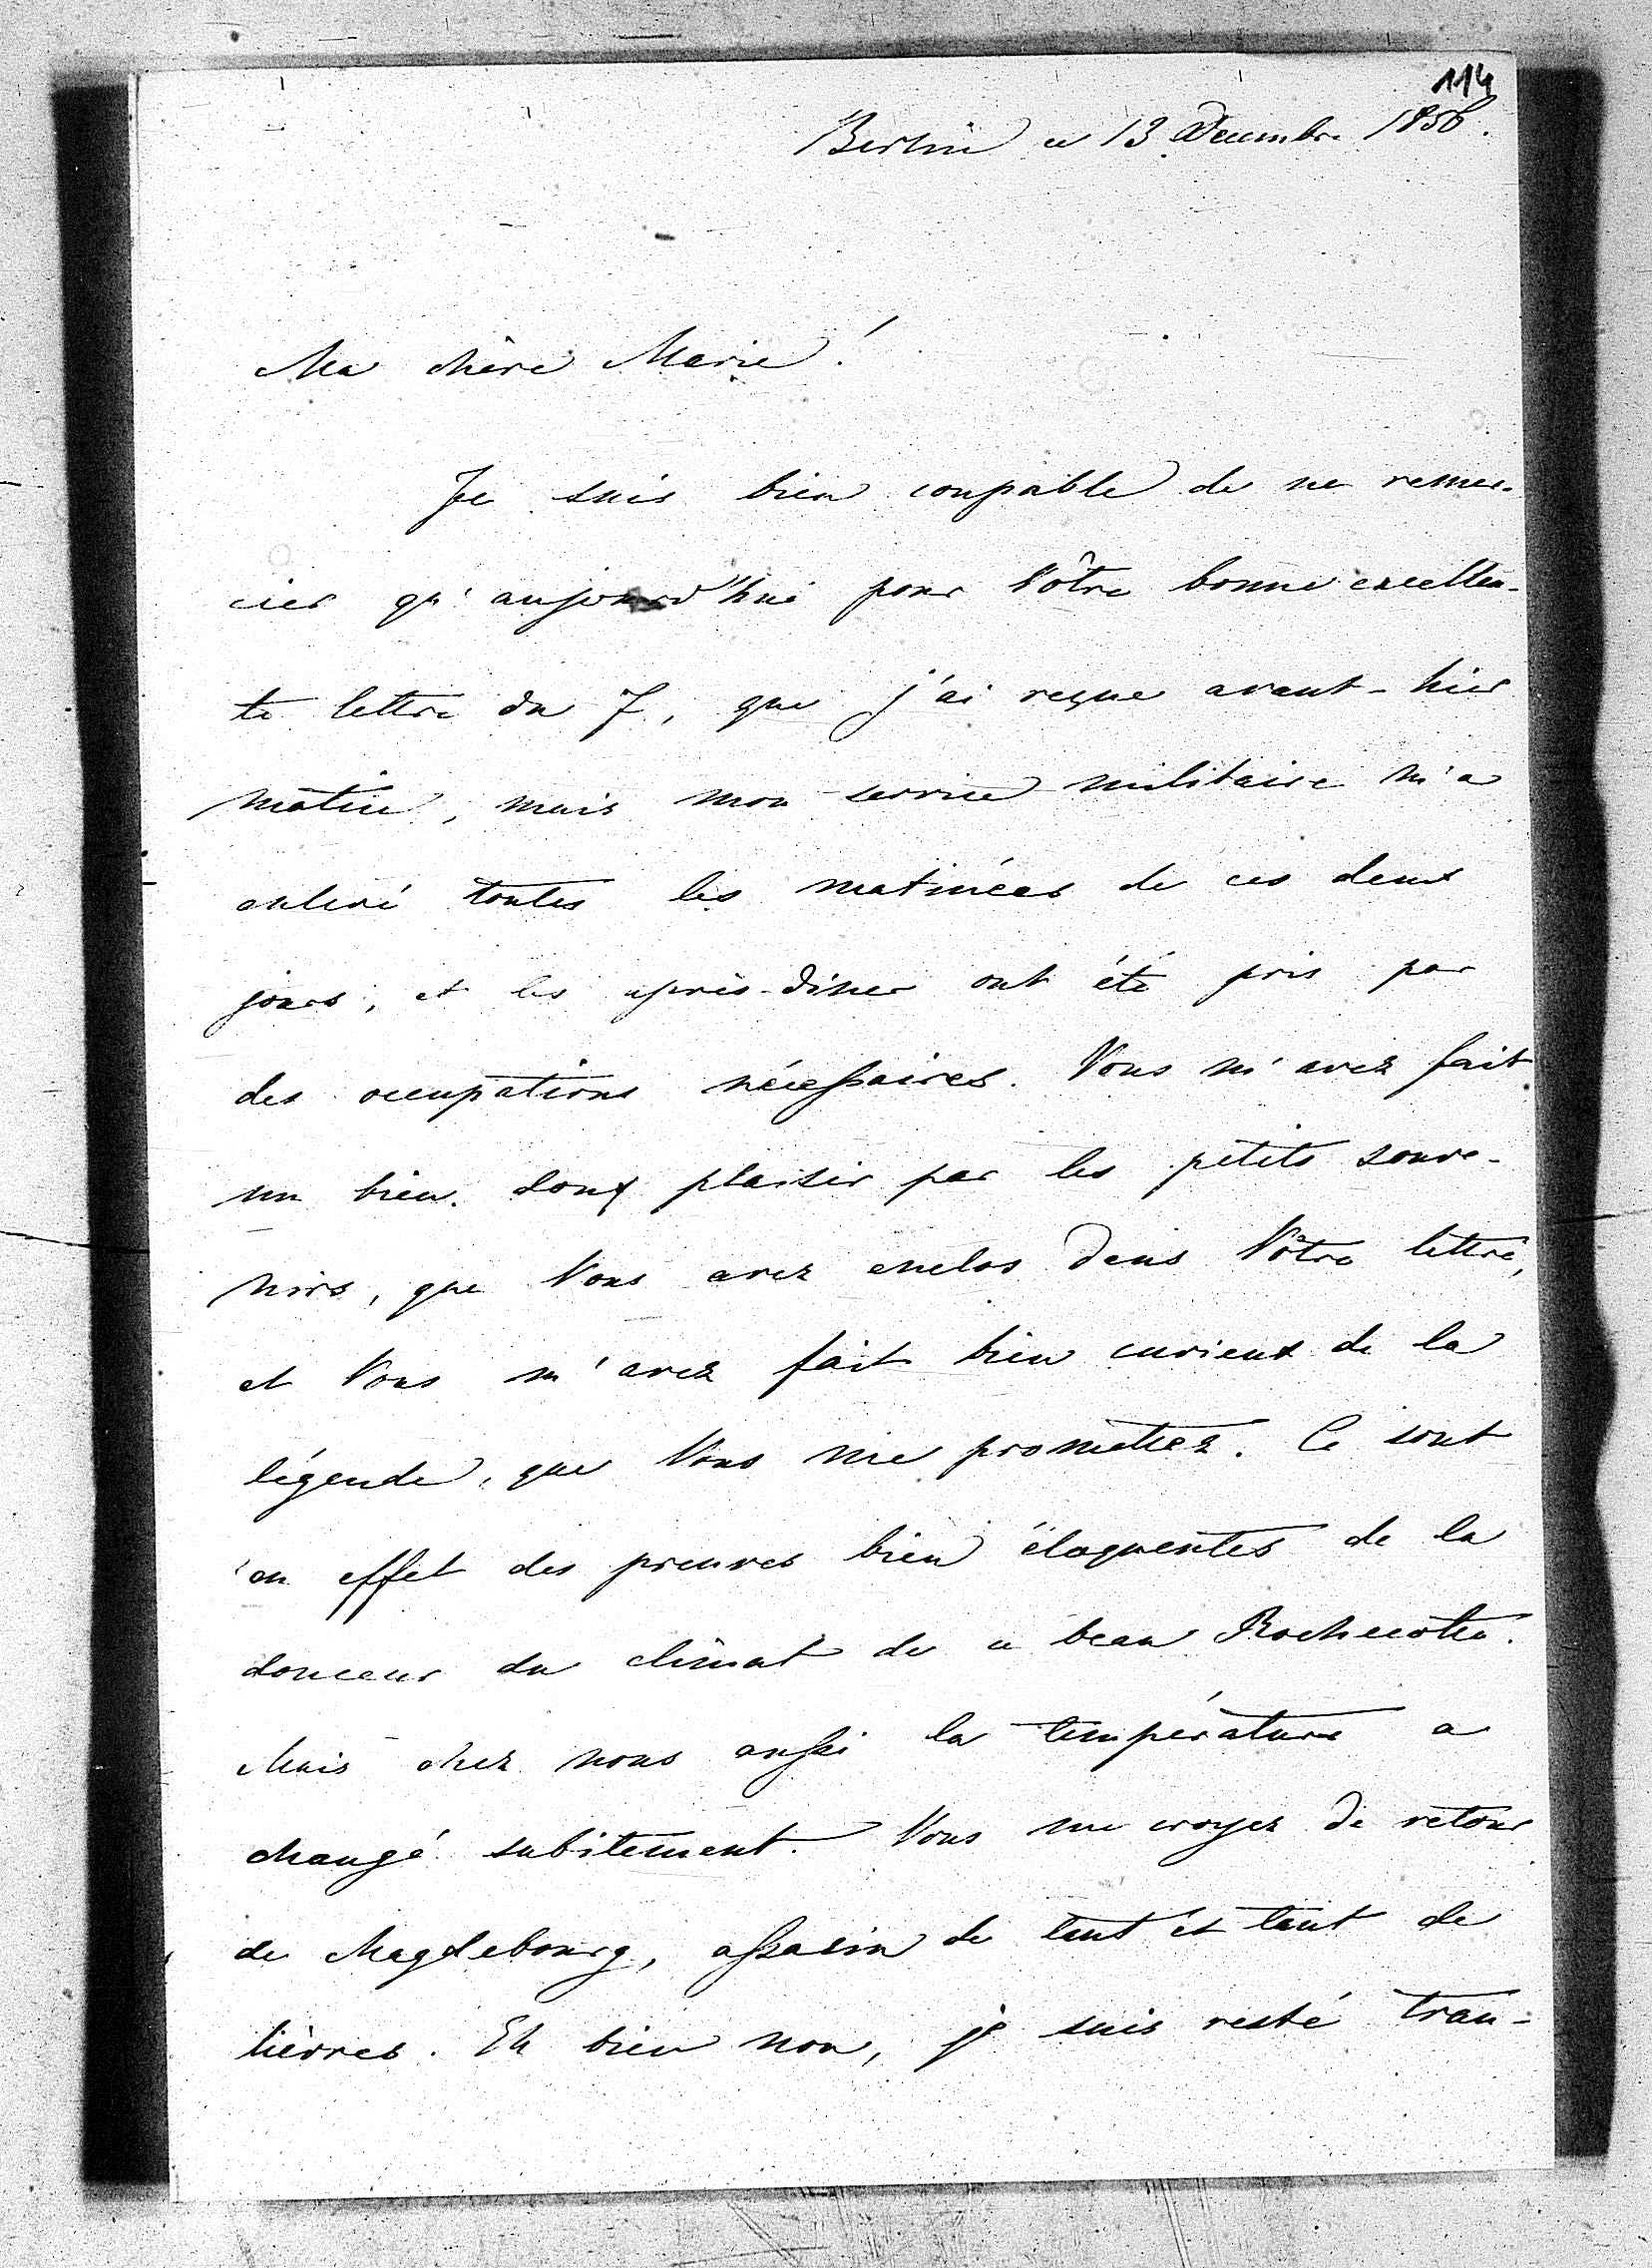 114
Berlin ce 13 Decembre 1856.
Ma chère Marie!
Je suis bien coupable de ne remer-
cier qu'aujourd'hui pour Vôtre bonne excellen-
te lettre du 7, que j'ai reçue avant-hier
matin, mais mon service militaire m'a
enlevé toutes les matinées de ces deux
jours, et les après-dîner ont été pris par
des occupations nécessaires. Vous m'avez fait
un bien doux plaisir par les petits souve-
nirs, que Vous avez enclos dans Vôtre lettre,
et Vous m'avez fait bien curieux de la
légende, que Vous me promettez. Ce sont
en effet des preuves bien éloquentes de la
douceur du climat de ce beau Rochecotte.
Mais chez nous aussi la température a
changé subitement. Vous me croyez de retour
de Magdebourg, assassin de tant et tant de
lièvres. Eh bien non, je suis resté tran-